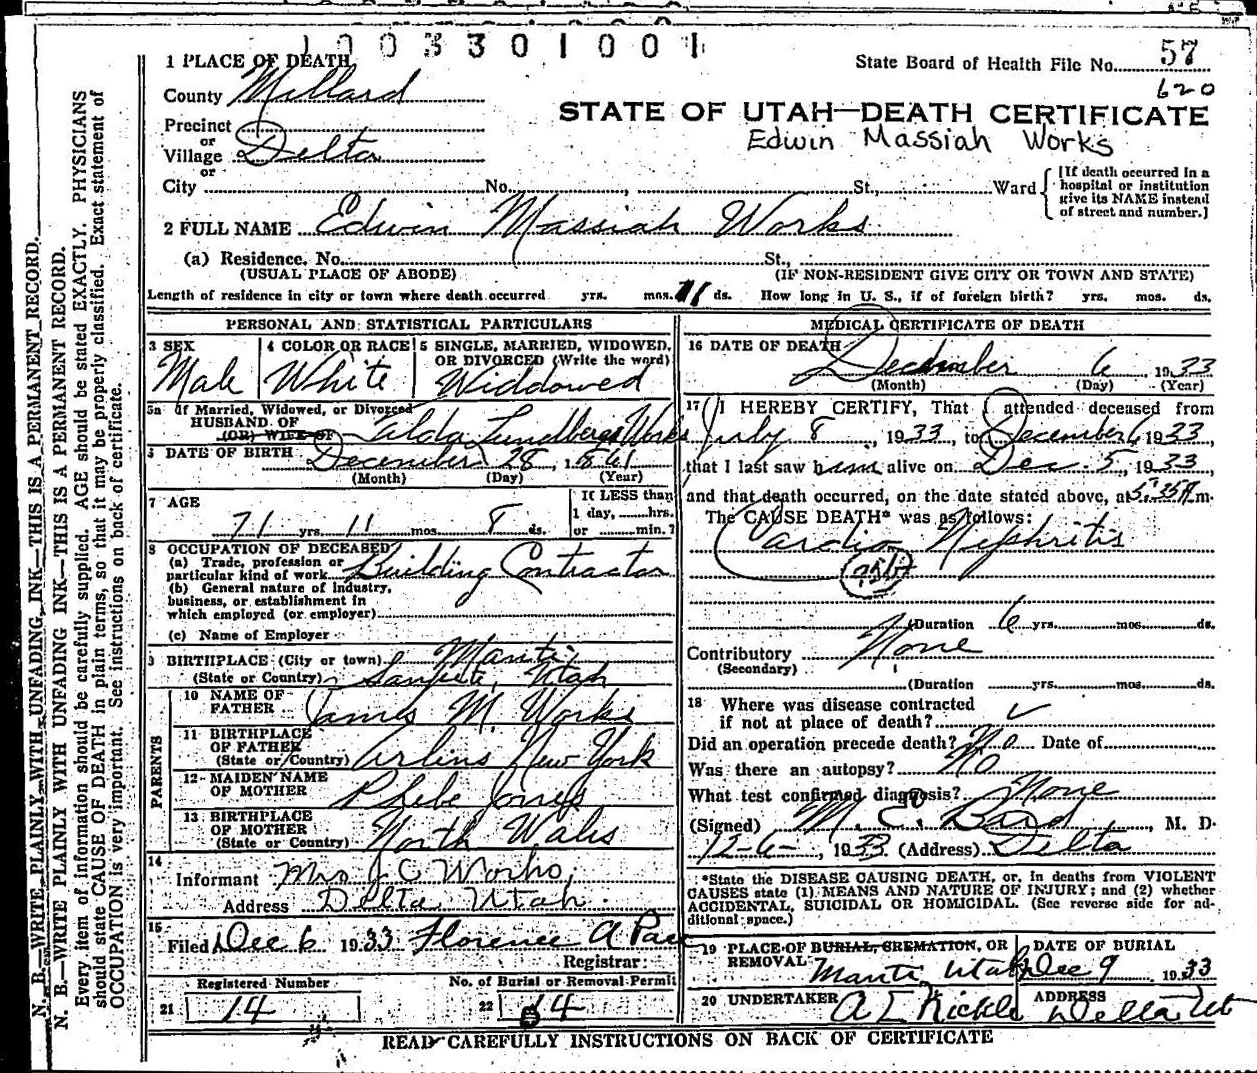 1003301001
1 PLACE OF DEATH
State Board of Health File No. 57
620
County Millard
STATE OF UTAH—DEATH CERTIFICATE
Edwin Massiah Works
Precinct
or
Village Delta
or
City No. , St., Ward
[If death occurred in a
hospital or institution
give its NAME instead
of street and number.]
2 FULL NAME Edwin Massiah Works
(a) Residence. No. St.,
(USUAL PLACE OF ABODE) (IF NON-RESIDENT GIVE CITY OR TOWN AND STATE)
Length of residence in city or town where death occurred yrs. mos. 11 ds. How long in U. S., if of foreign birth? yrs. mos. ds.
PERSONAL AND STATISTICAL PARTICULARS
3 SEX 4 COLOR OR RACE 5 SINGLE, MARRIED, WIDOWED,
OR DIVORCED (Write the word)
Male White Widdowed
5a If Married, Widowed, or Divorced
HUSBAND OF
(OR) WIFE OF Lundberg Works
6 DATE OF BIRTH December 28, 1861
(Month) (Day) (Year)
7 AGE If LESS than
1 day, hrs.
71 yrs. 11 mos. 8 ds. or min.?
8 OCCUPATION OF DECEASED
(a) Trade, profession or
particular kind of work Building Contractor
(b) General nature of industry,
business, or establishment in
which employed (or employer)
(c) Name of Employer
9 BIRTHPLACE (City or town) Manti
(State or Country) Sanpete, Utah
PARENTS
10 NAME OF
FATHER James M. Works
11 BIRTHPLACE
OF FATHER
(State or Country) New York
12 MAIDEN NAME
OF MOTHER Phebe Jones
13 BIRTHPLACE
OF MOTHER
(State or Country) North Wales
14
Informant Mrs J C Works,
Address Delta, Utah.
15
Filed Dec 6 1933 Florence A Pace
Registrar
Registered Number No. of Burial or Removal Permit
21 14 22 14
MEDICAL CERTIFICATE OF DEATH
16 DATE OF DEATH
December 6, 1933
(Month) (Day) (Year)
17 I HEREBY CERTIFY, That I attended deceased from
July 8, 1933, to December 6, 1933,
that I last saw him alive on Dec. 5, 1933,
and that death occurred, on the date stated above, at 5:25 A m.
The CAUSE DEATH* was as follows:
Cardio Nephritis
(Duration 6 yrs. mos. ds.
Contributory None
(Secondary)
(Duration yrs. mos. ds.
18 Where was disease contracted
if not at place of death? ✓
Did an operation precede death? No Date of
Was there an autopsy? No
What test confirmed diagnosis? None
(Signed) M. C. Bird, M. D.
12-6-, 1933 (Address) Delta
*State the DISEASE CAUSING DEATH, or, in deaths from VIOLENT
CAUSES state (1) MEANS AND NATURE OF INJURY; and (2) whether
ACCIDENTAL, SUICIDAL OR HOMICIDAL. (See reverse side for ad-
ditional space.)
19 PLACE OF BURIAL, CREMATION, OR
REMOVAL Manti Utah
DATE OF BURIAL
Dec 9 1933
20 UNDERTAKER A L Nickle
ADDRESS
Delta Ut
READ CAREFULLY INSTRUCTIONS ON BACK OF CERTIFICATE
N. B.—WRITE PLAINLY WITH UNFADING INK—THIS IS A PERMANENT RECORD.
N. B.—WRITE PLAINLY WITH UNFADING INK—THIS IS A PERMANENT RECORD.
Every item of information should be carefully supplied. AGE should be stated EXACTLY. PHYSICIANS
should state CAUSE OF DEATH in plain terms, so that it may be properly classified. Exact statement of
OCCUPATION is very important. See instructions on back of certificate.